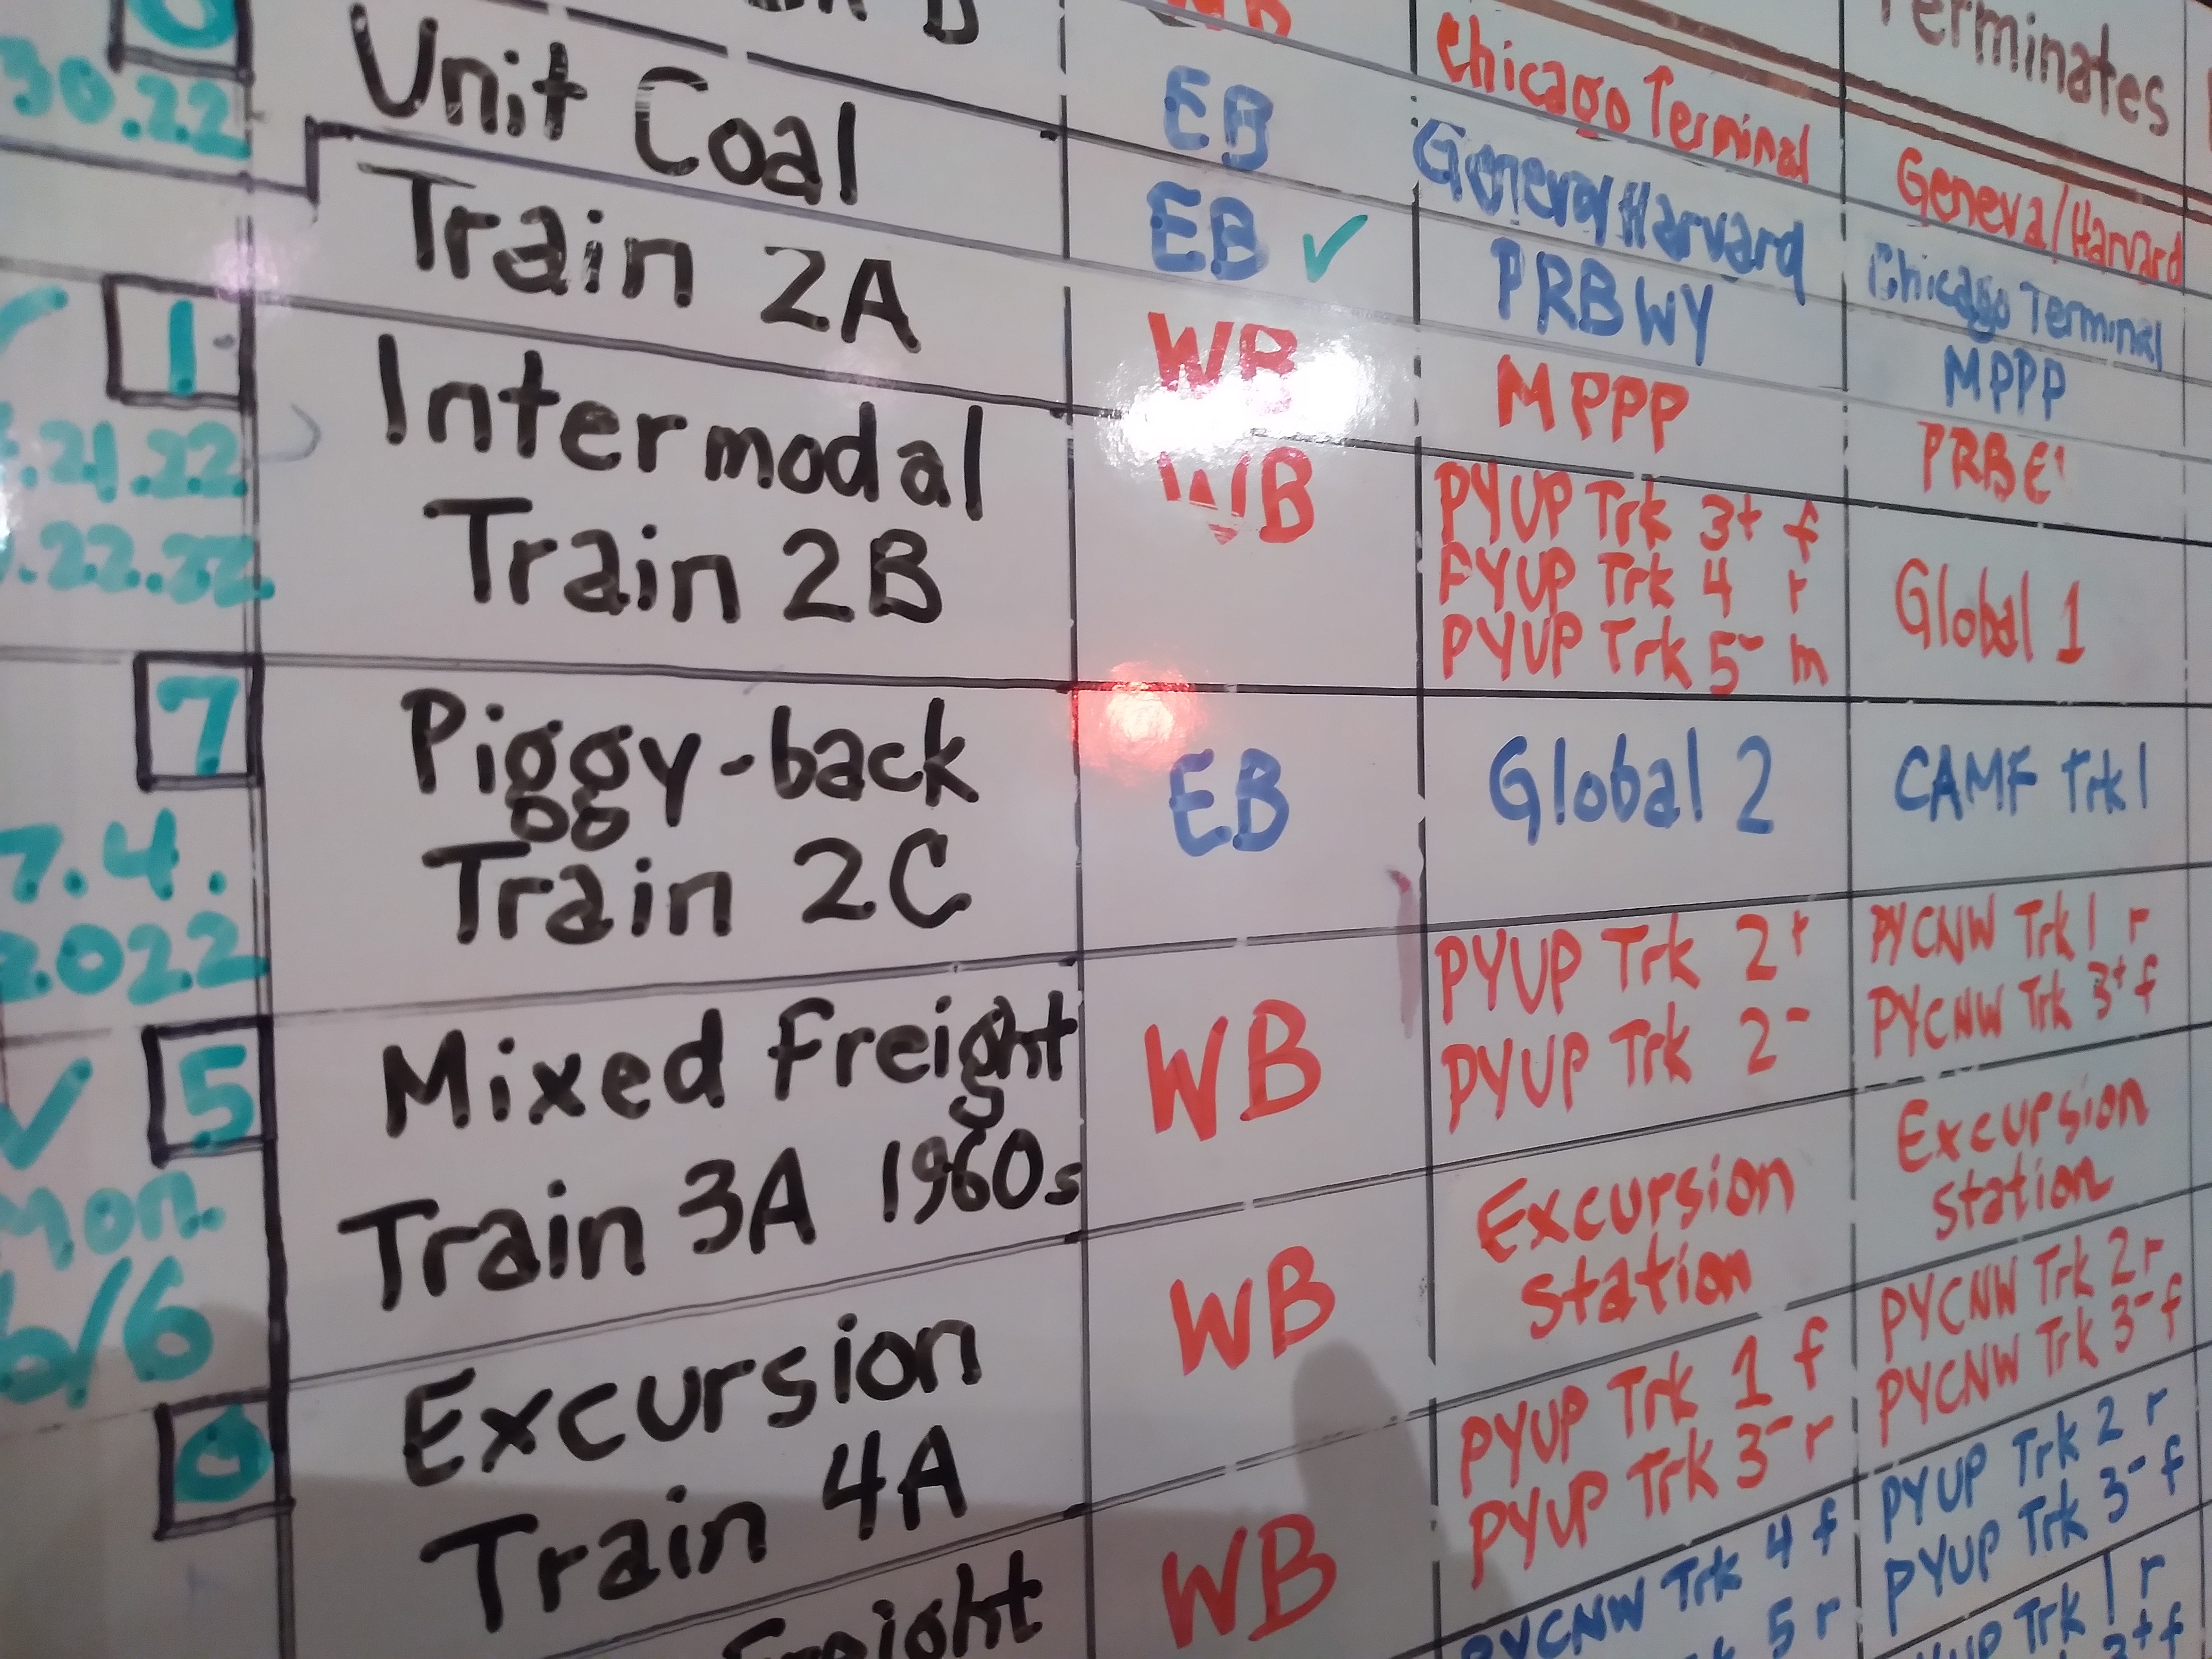 Terminates
Chicago Terminal
Geneva/Harvard
EB
Geneva/Harvard
Chicago Terminal
30.22
Unit Coal
Train 2A
EB ✓
PRBWY
MPPP
WB
MPPP
PRBE
1
.21.22
.22.22
Intermodal
Train 2B
WB
PYUP Trk 3+ f
PYUP Trk 4 r
PYUP Trk 5- m
Global 1
7
7.4.
2022
Piggy-back
Train 2C
EB
Global 2
CAMF Trk 1
5
✓
Mon.
6/6
Mixed Freight
Train 3A 1960s
WB
PYUP Trk 2+
PYUP Trk 2-
PYCNW Trk 1 r
PYCNW Trk 3+ f
Excursion
Train 4A
WB
Excursion
Station
Excursion
Station
Freight
WB
PYUP Trk 1 f
PYUP Trk 3- r
PYCNW Trk 2 r
PYCNW Trk 3- f
PYCNW Trk 4 f
5 r
PYUP Trk 2 r
PYUP Trk 3- f
Trk 1 r
3+ f